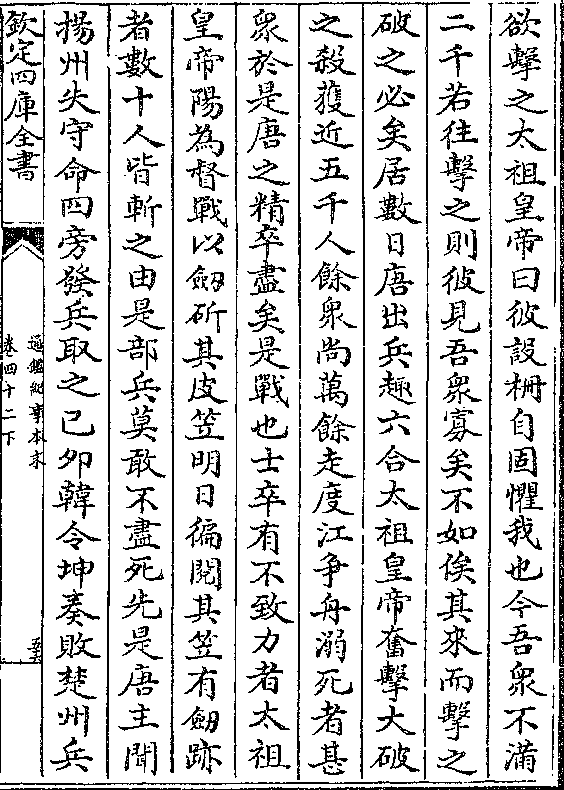 欲擊之太祖皇帝曰彼設柵自固懼我也今吾衆不滿
二千若往擊之則彼見吾衆寡矣不如俟其來而擊之
破之必矣居數日唐出兵趣六合太祖皇帝奮擊大破
之殺獲近五千人餘衆尚萬餘走度江爭舟溺死者甚
衆於是唐之精卒盡矣是戰也士卒有不致力者太祖
皇帝陽為督戰以劒斫其皮笠明日徧閱其笠有劒跡
者數十人皆斬之由是部兵莫敢不盡死先是唐主聞
揚州失守命四旁發兵取之己卯韓令坤奏敗楚州兵
欽定四庫全書
通鑑紀事本末
卷四十二下